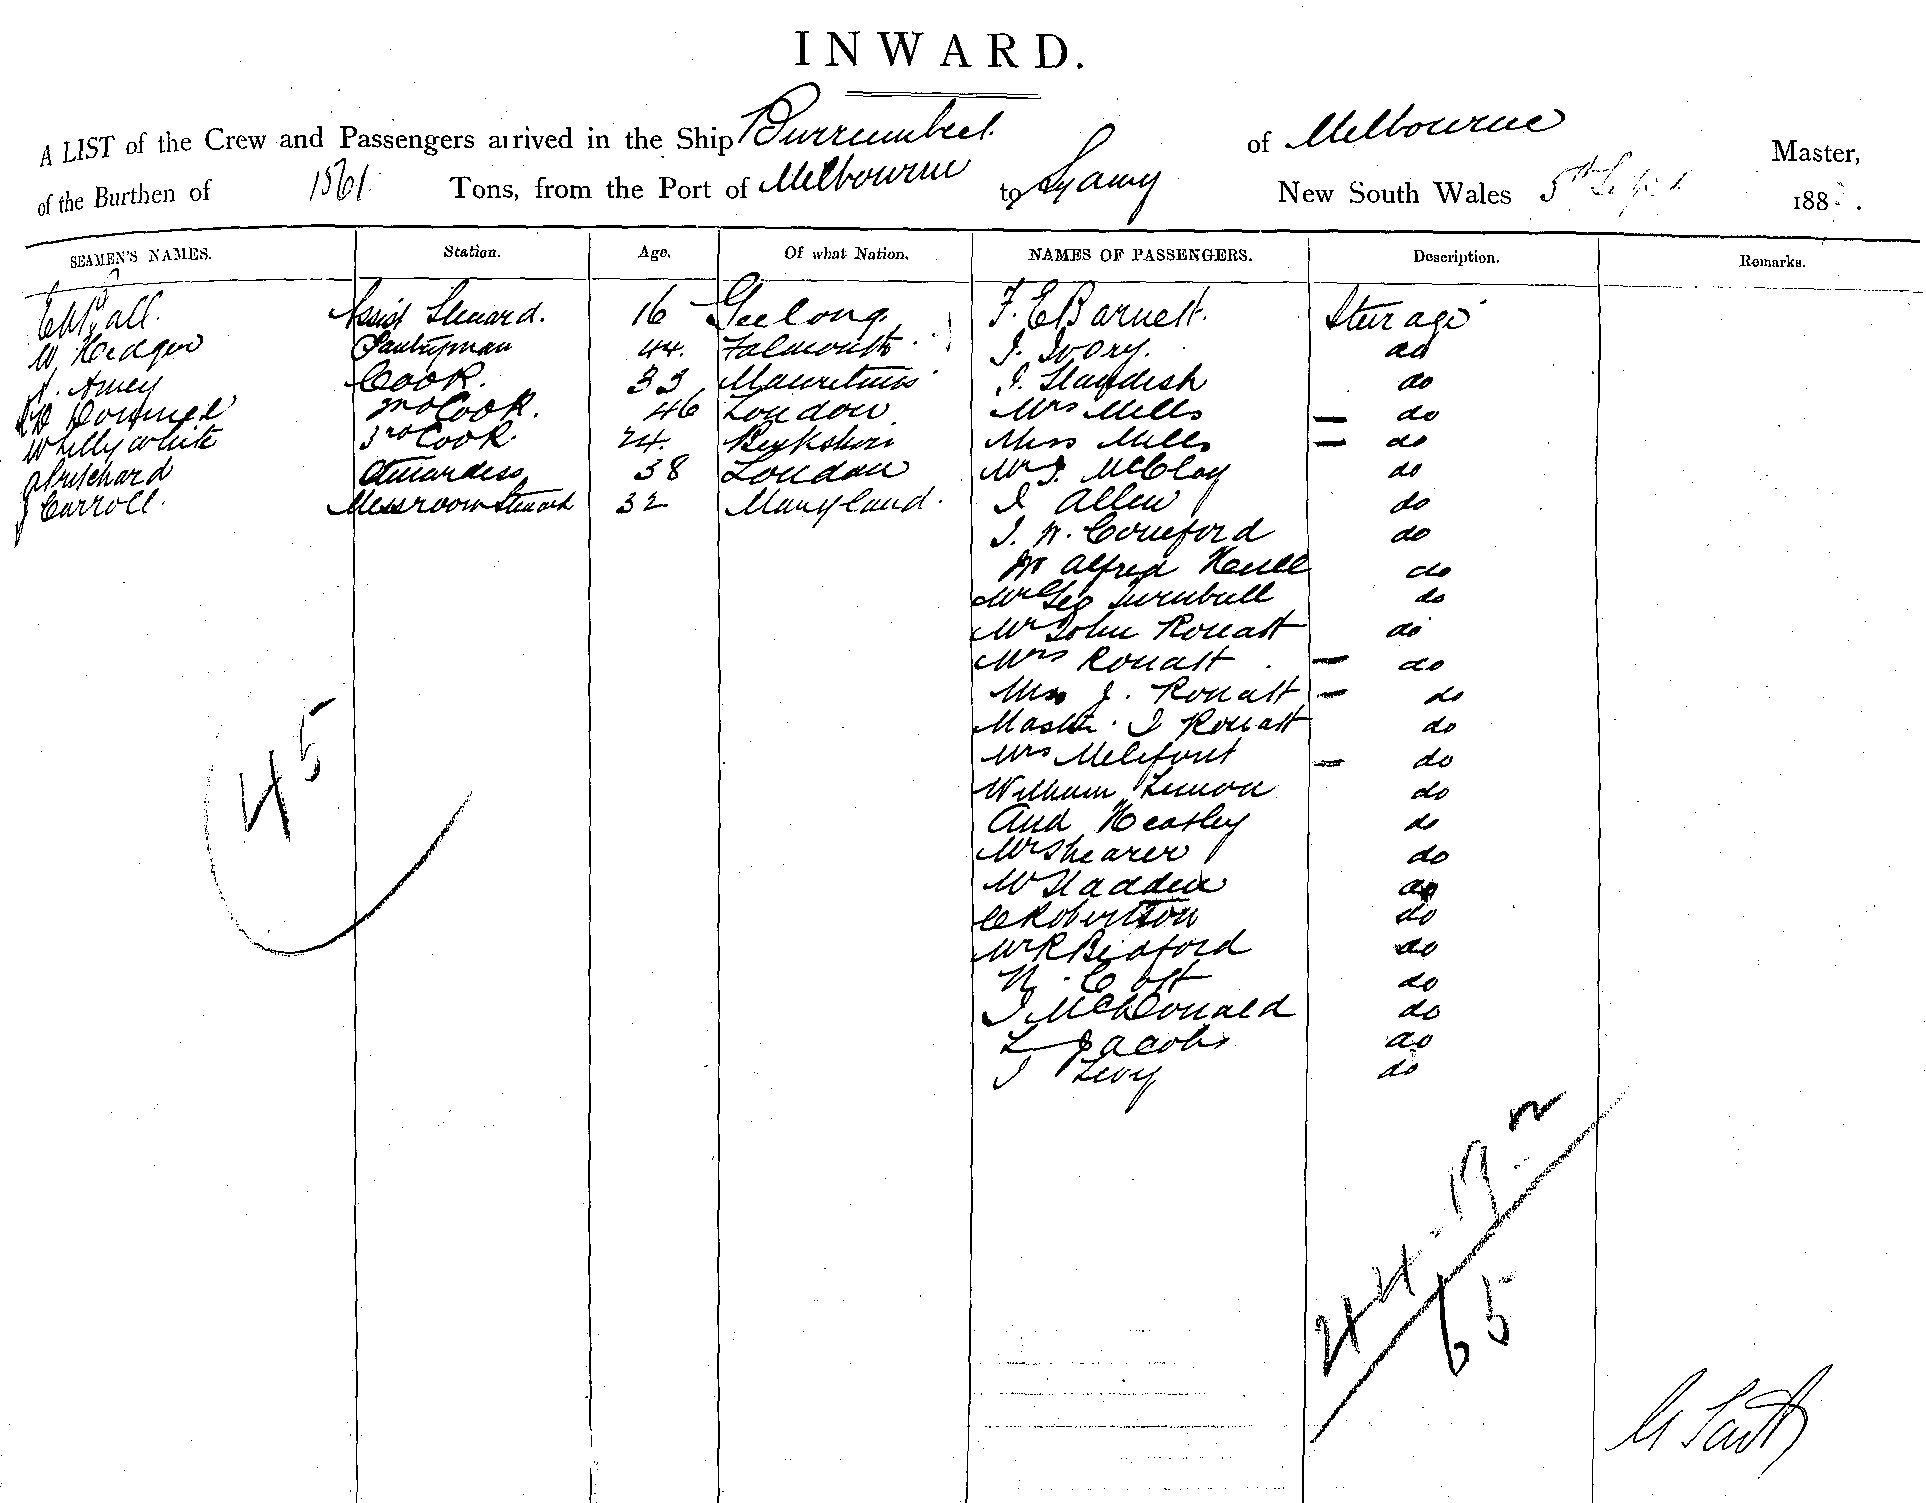 INWARD.
A LIST of the Crew and Passengers arrived in the Ship Burrumbeet of Melbourne Master,
of the Burthen of 1561 Tons, from the Port of Melbourne to Sydney New South Wales 5th Sept 188
SEAMEN'S NAMES. Station. Age. Of what Nation. NAMES OF PASSENGERS. Description. Remarks.
Assist Steward. 16 Geelong F. E Barnett. Steerage
W Hedger Pantryman 44. Falmouth J. Ivory. do
A. Amey Cook. 33 Mauritius J. Standish do
2nd Cook. 46 London Mrs Mills — do
Whillywhite 3rd Cook. 24. Berkshire Miss Mills — do
Pritchard Stewardess 38 London Mr J. McClay do
J Carroll. Messroom Steward 32 Maryland. J Allen do
J. W. Corneford do
Mr Alfred do
Mr Geo Turnbull do
Mr John Rouatt do
Mrs Rouatt — do
Miss J. Rouatt — do
Master J Rouatt do
Mrs Melifont — do
William Lemon do
And Heatley do
Mr Shearer do
W Hadden do
C Robertson do
Mr R Bedford do
N. Cott do
J McDonald do
L Jacobs do
J Levy do
45
44 - 19 - 2
65